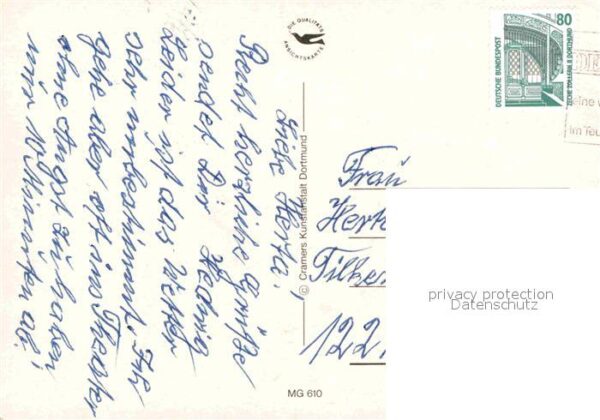 Liebe Herta,
Recht herzliche Grüße
sendet Dir Hedwig
Leider ist das Wetter
sehr unbestimmt. Ich
gehe aber oft ins Theater
ohne Angst zu haben
wir 10 Minuten ab!
DIE QUALITÄTS
ANSICHTSKARTE
© Cramers Kunstanstalt Dortmund
MG 610
80
DEUTSCHE BUNDESPOST
ZECHE ZOLLERN II DORTMUND
eine
im Teu
Frau
Hert
122
privacy protection
Datenschutz